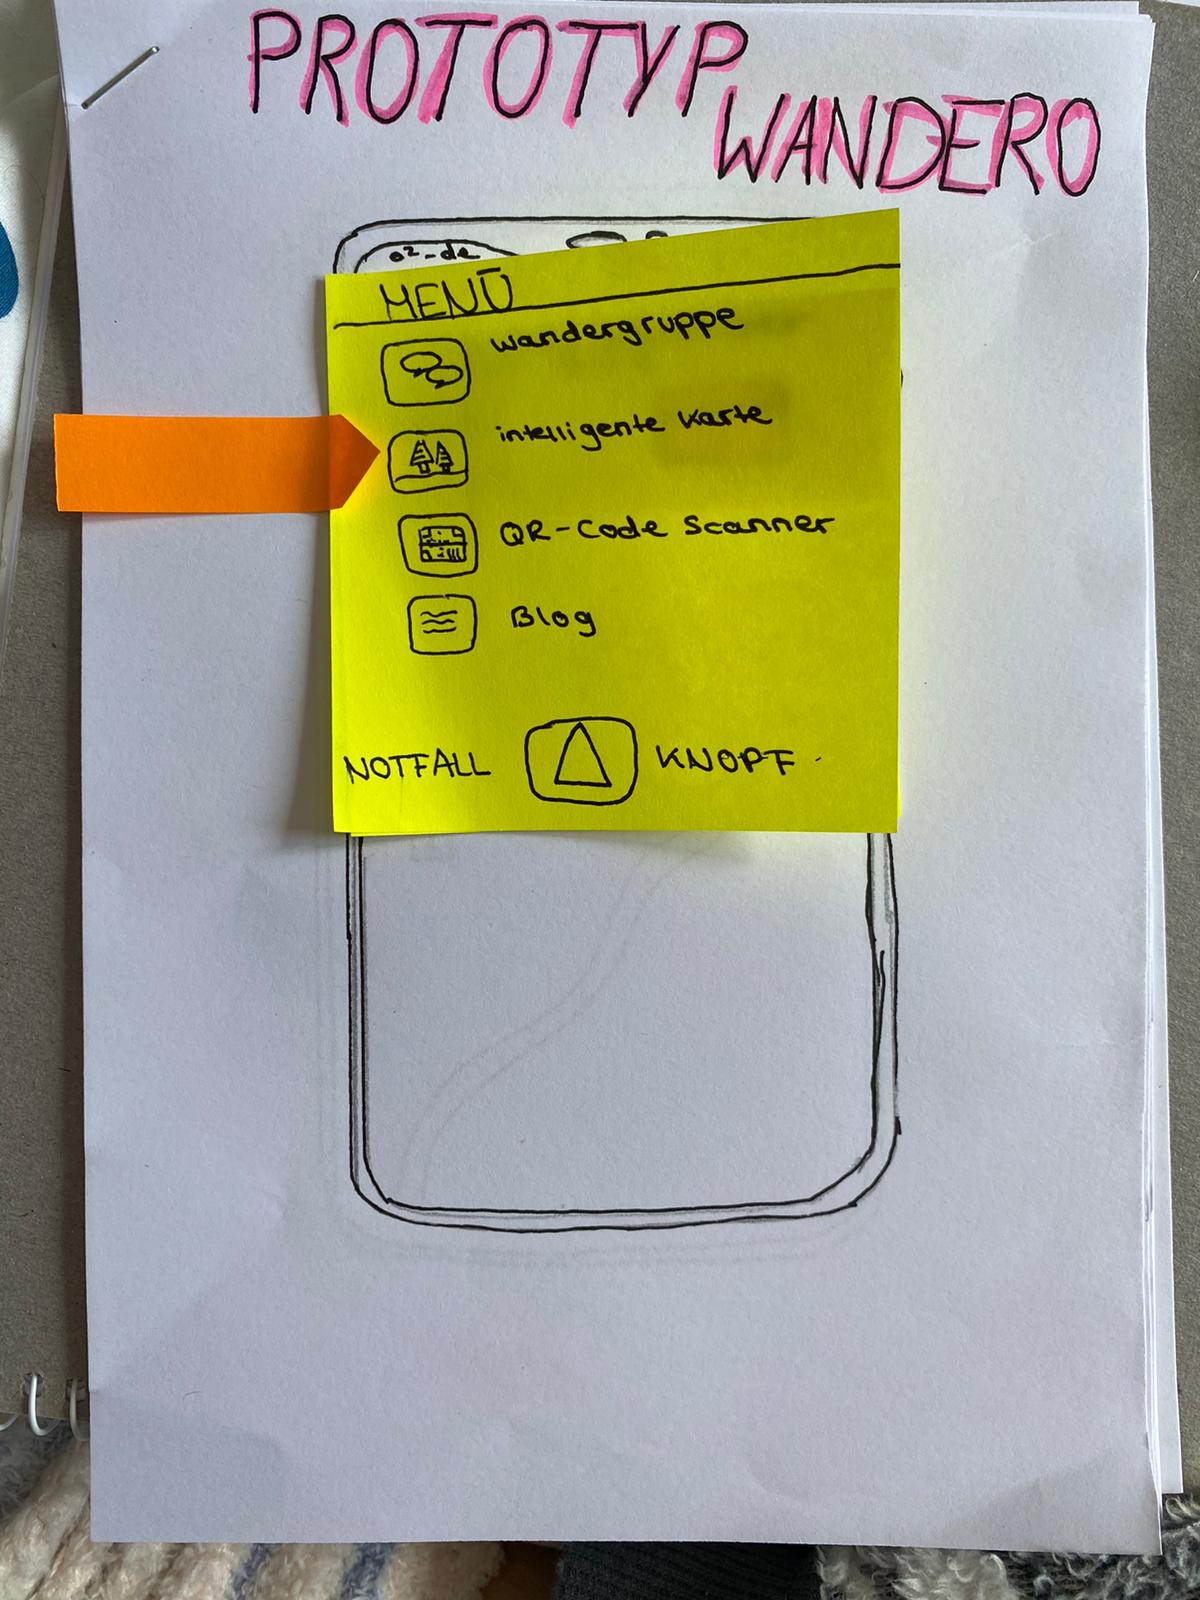 PROTOTYP
WANDERO
o²-de
MENÜ
Wandergruppe
intelligente Karte
QR-Code Scanner
Blog
NOTFALL KNOPF